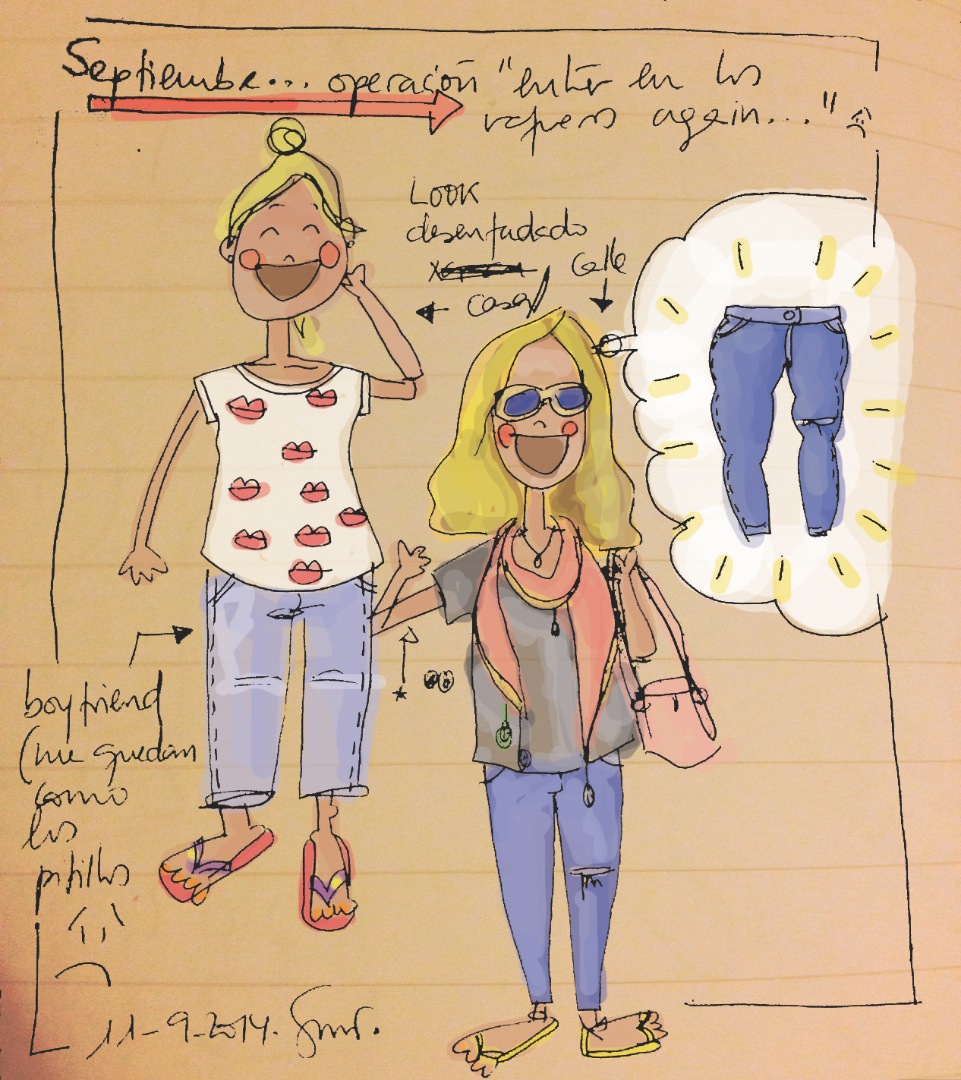 Septiembre... operación "entrar en los
vaqueros again..."
Look
desenfadado
x
casa / calle
boyfriend
(me quedan
como
los
pitillos
11-9-2014.